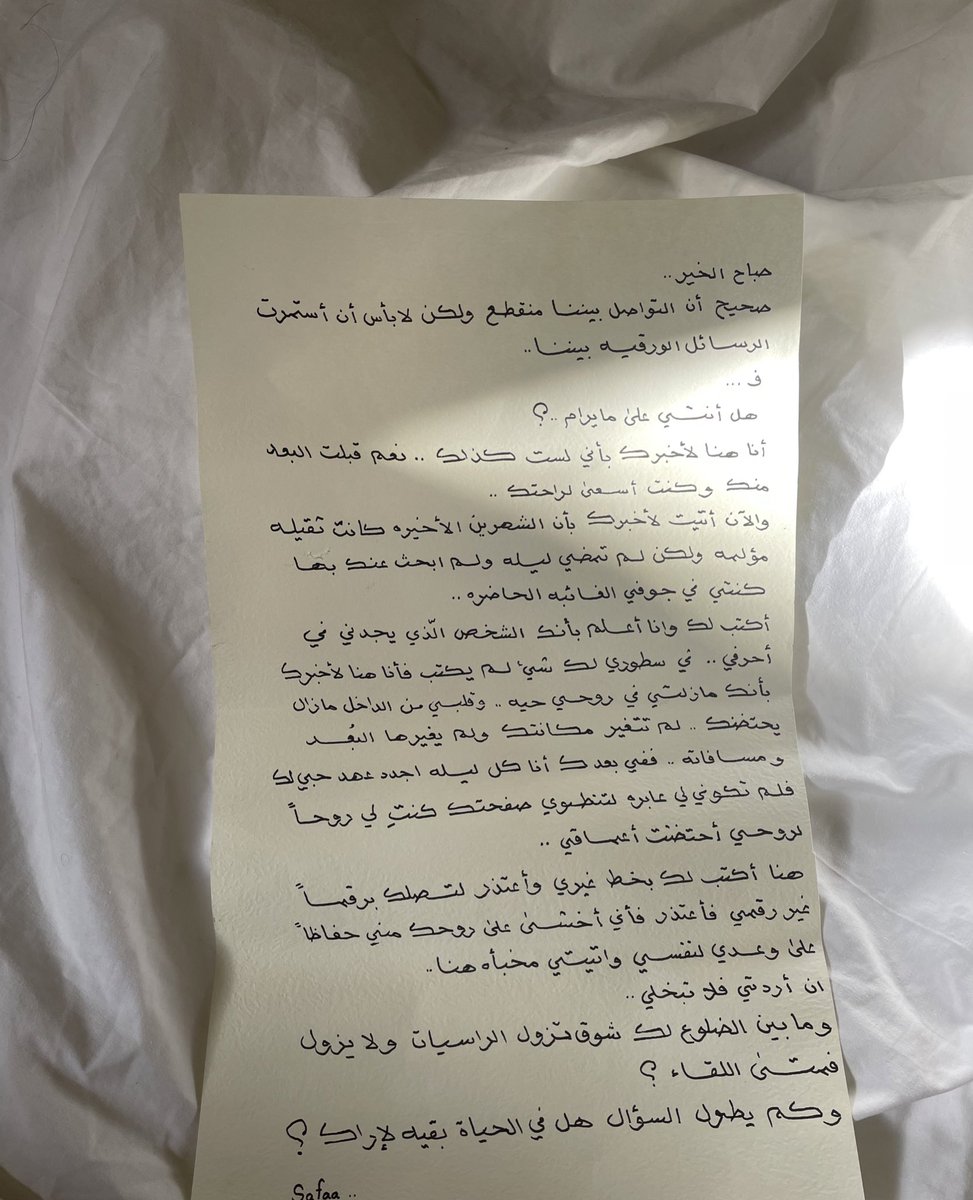 صباح الخير..
صحيح أن التواصل بيننا منقطع ولكن لابأس أن أستمرت
الرسائل الورقيه بيننا..
ف ...
هل أنتي على مايرام ..؟
أنا هنا لأخبرك بأني لست كذلك .. نعم قبلت البعد
منك وكنت أسعى لراحتك ..
والآن أتيت لأخبرك بأن الشهرين الأخيره كانت ثقيله
مؤلمه ولكن لم تمضي ليله ولم ابحث عنك بها
كنتي في جوفي الغائبه الحاضره ..
أكتب لك وانا أعلم بأنك الشخص الّذي يجدني في
أحرفي .. في سطوري لك شيئ لم يكتب فأنا هنا لأخبرك
بأنك مازلتي في روحي حيه .. وقلبي من الداخل مازال
يحتضنك .. لم تتغير مكانتك ولم يغيرها البُعد
ومسافاته .. ففي بعدك أنا كل ليله اجدد عهد حبي لك
فلم تكوني لي عابره لتنطوي صفحتك كنتِ لي روحاً
لروحي أحتضنت أعماقي ..
هنا أكتب لك بخط غيري وأعتذر لتصلك برقماً
غير رقمي فأعتذر فأني أخشى على روحك مني حفاظاً
على وعدي لنفسي واتيتي مخبأه هنا..
ان أردتي فلا تبخلي ..
وما بين الضلوع لك شوق تزول الراسيات ولا يزول
فمتى اللقاء ؟
وكم يطول السؤال هل في الحياة بقيه لإراك ؟
Safaa ..